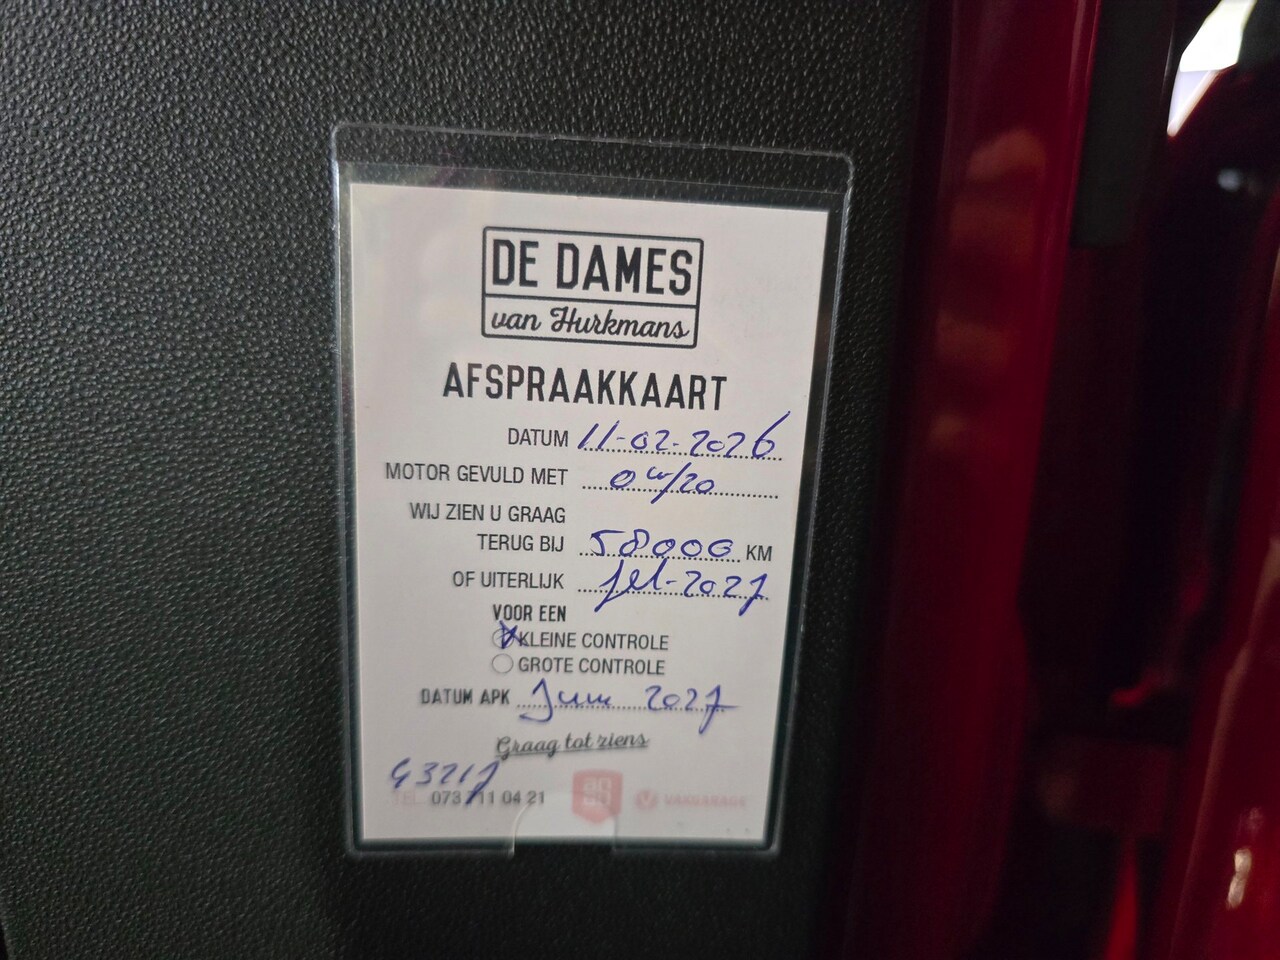 DE DAMES
van Hurkmans
AFSPRAAKKAART
DATUM 11-02-2026
MOTOR GEVULD MET 0w/20
WIJ ZIEN U GRAAG
TERUG BIJ 58000 KM
OF UITERLIJK feb-2027
VOOR EEN
KLEINE CONTROLE
GROTE CONTROLE
DATUM APK Juni 2027
Graag tot ziens
43217
TEL. 073 711 04 21
VAKGARAGE